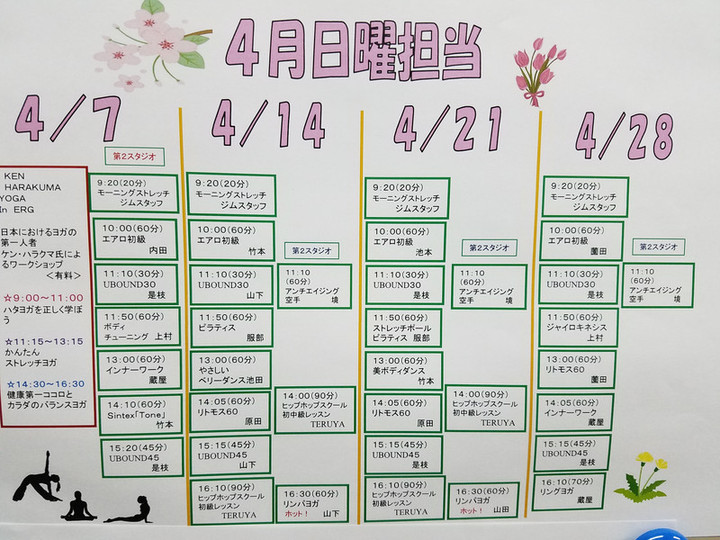 4月日曜担当
4/7
KEN
HARAKUMA
YOGA
In ERG
日本におけるヨガの
第一人者
ケン・ハラクマ氏によ
るワークショップ
<有料>
☆9:00~11:00
ハタヨガを正しく学ぼ
う
☆11:15~13:15
かんたん
ストレッチヨガ
☆14:30~16:30
健康第一ココロと
カラダのバランスヨガ
第2スタジオ
9:20(20分)
モーニングストレッチ
ジムスタッフ
10:00(60分)
エアロ初級
内田
11:10(30分)
UBOUND30
是枝
11:50(60分)
ボディ
チューニング 上村
13:00(60分)
インナーワーク
蔵屋
14:10(60分)
Sintex「Tone」
竹本
15:20(45分)
UBOUND45
是枝
4/14
9:20(20分)
モーニングストレッチ
ジムスタッフ
10:00(60分)
エアロ初級
竹本
11:10(30分)
UBOUND30
山下
11:50(60分)
ピラティス
服部
13:00(60分)
やさしい
ベリーダンス池田
14:05(60分)
リトモス60
原田
15:15(45分)
UBOUND45
山下
16:10(90分)
ヒップホップスクール
初級レッスン
TERUYA
第2スタジオ
11:10
(60分)
アンチエイジング
空手 境
14:00(90分)
ヒップホップスクール
初中級レッスン
TERUYA
16:30(60分)
リンパヨガ
ホット! 山下
4/21
9:20(20分)
モーニングストレッチ
ジムスタッフ
10:00(60分)
エアロ初級
池本
11:10(30分)
UBOUND30
是枝
11:50(60分)
ストレッチポール
ピラティス 服部
13:00(60分)
美ボディダンス
竹本
14:05(60分)
リトモス60
原田
15:15(45分)
UBOUND45
是枝
16:10(90分)
ヒップホップスクール
初級レッスン
TERUYA
第2スタジオ
11:10
(60分)
アンチエイジング
空手 境
14:00(90分)
ヒップホップスクール
初中級レッスン
TERUYA
16:30(60分)
リンパヨガ
ホット! 山田
4/28
9:20(20分)
モーニングストレッチ
ジムスタッフ
10:00(60分)
エアロ初級
薗田
11:10(30分)
UBOUND30
是枝
11:50(60分)
ジャイロキネシス
上村
13:00(60分)
リトモス60
薗田
14:05(60分)
インナーワーク
蔵屋
15:15(45分)
UBOUND45
是枝
16:10(70分)
リングヨガ
蔵屋
第2スタジオ
11:10
(60分)
アンチエイジング
空手 境